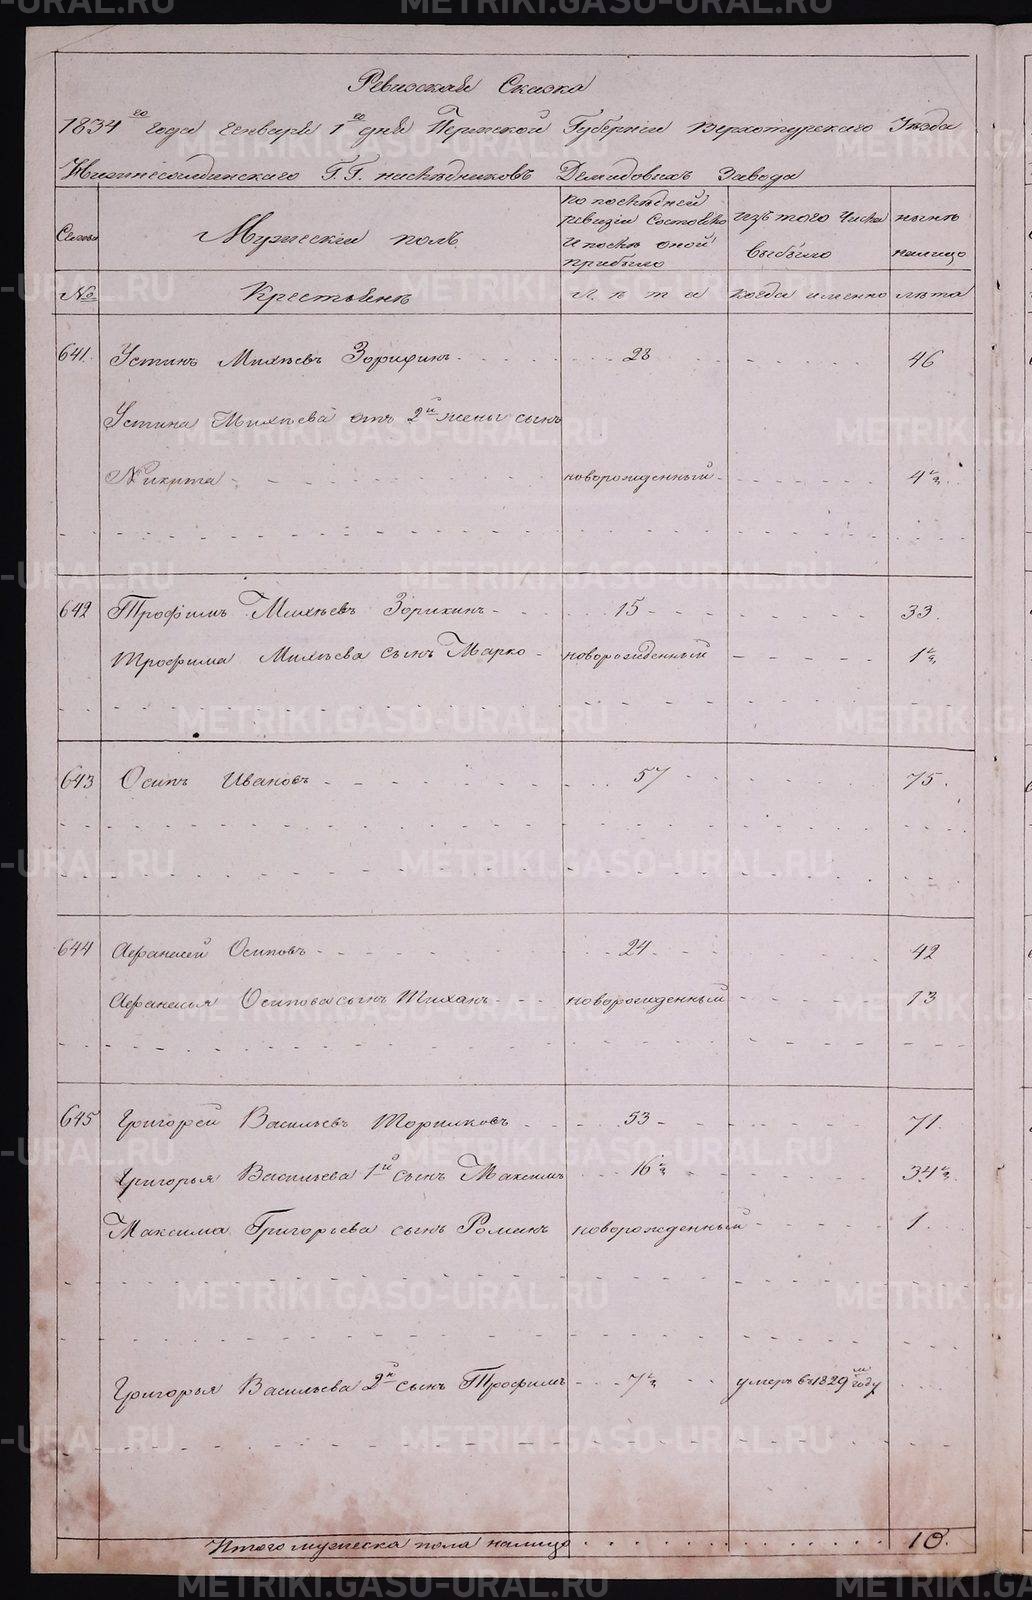 Ревизская Сказка
1834го года Генваря 1го дня Пермской Губернии Верхотурскаго Уезда
Нижнесалдинскаго Г.Г. наследниковъ Демидовыхъ Завода
Семьи
Мужескій полъ
по последней ревизіи Состояло и после оной прибыло
изъ того числа выбыло
ныне налицо
№
Крестьяне
Лета
когда именно
лета
641. Устинъ Михеевъ Зорихинъ 28 46
Устина Михеева отъ 2й жены сынъ
Никита новорожденный 4½
642 Трофимъ Михеевъ Зорихинъ 15 33.
Трофима Михеева сынъ Марко новорожденный 1½
643 Осипъ Ивановъ 57 75.
644 Афанасей Осиповъ 24 42
Афанасья Осипова сынъ Тиханъ новорожденный 13
645 Григорей Васильевъ 53 71.
Григорья Васильева 1й сынъ Максимъ 16½ 34½
Максима Григорьева сынъ Романъ новорожденный 1.
Григорья Васильева 2й сынъ Трофимъ 7½ умеръ въ 1829м году
Итого мужеска пола налицо 10.
METRIKI.GASO-URAL.RU